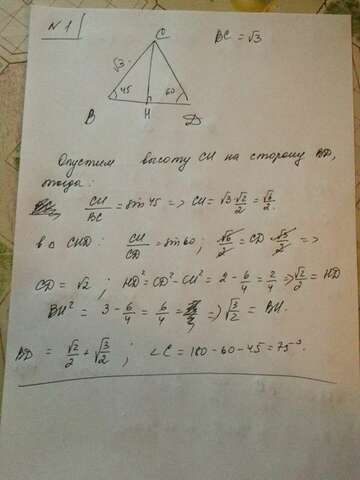 N 1
BC = √3
C
√3
45
60
B
H
D
Опустим высоту CH на сторону BD,
тогда:
CH/BC = sin 45 => CH = √3·√2/2 = √6/2.
в Δ CHD: CH/CD = sin 60; √6/2 = CD √3/2 =>
CD = √2; HD² = CD² - CH² = 2 - 6/4 = 2/4 => √2/2 = HD
BH² = 3 - 6/4 = 6/4 = 3/2 => √3/2 = BH.
BD = √2/2 + √3/2; ∠C = 180 - 60 - 45 = 75°.